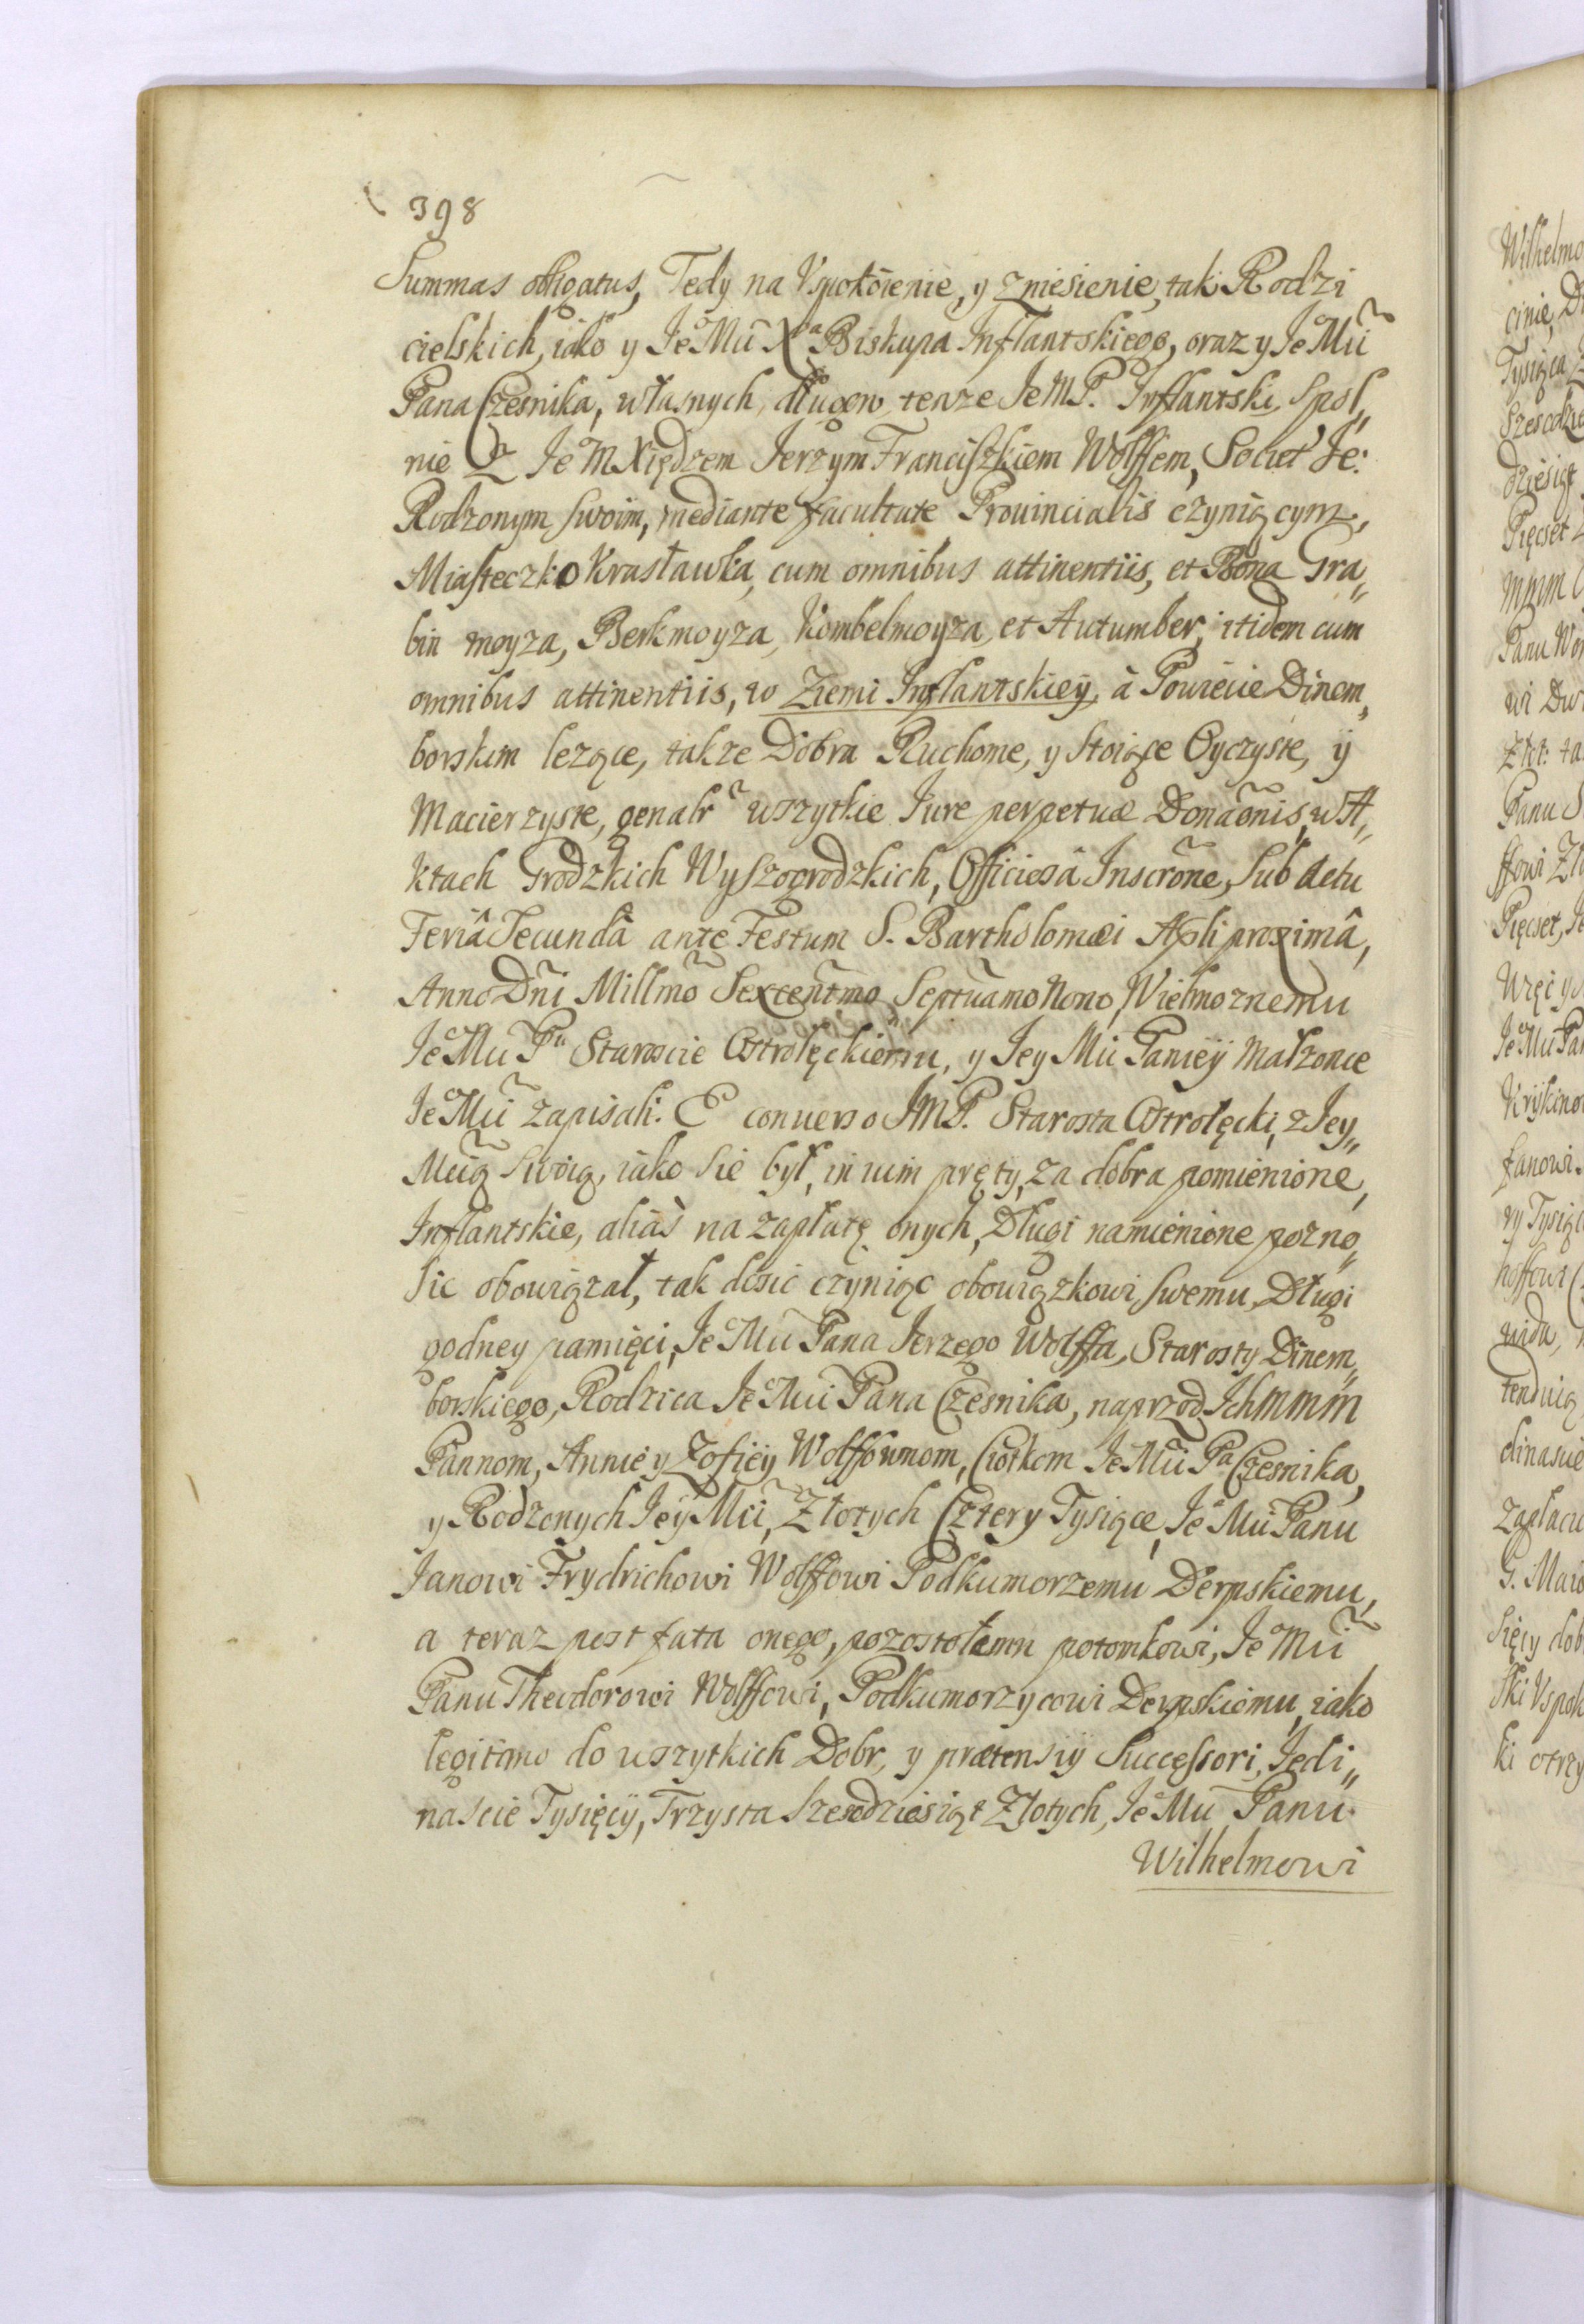 398
Summas obligatus, Tedy na Vspokoienie, y zniesienie, tak Rodzi
cielskich, iako y Ie Mu Xa Biskupa Inflantskiego, oraz y Ie Mu
Pana Czesnika, własnych, długow, tenze Ie M P. Inflantski, Spol,,
nie Z Ie M Xiędzem Ierzym Franciszkiem Wolffem, Societ Ie:
Rodzonym swoim, mediante facultate Prouincialis czyniącym,
Miasteczko Krasławka, cum omnibus attinentiis, et Bona Gra,,
bin moyza, Berkmoyza, Kombelmoyza, et Autumber, itidem cum
omnibus attinentiis, w Ziemi Inflantskiey, à Powiecie Dinem,,
borskim lezące, takze Dobra Ruchome, y Stoiące Oyczyste, ÿ
Macierzyste, genalr wszytkie Iure perpetuæ Donãonis, w A,,
ktach Grodzkich Wyszogrodzkich, Officiosâ Inscrõne, Sub Actu
Feriâ Secundâ ante Festum S. Bartholomæi Apli proximâ,
Anno Dñi Millmõ Sexcentmõ Septuamo Nono, Wielmoznemu
Ie Mu Pu Staroscie Ostrołęckiemu, y Iey Mu Paniey Małzonce
Ie Mu zapisali. E conuerso IMP. Starosta Ostrołęcki, z Iey,,
Mcią Swoią, iako Sie był, in uim pręty, za dobra pomienione,
Inflantskie, aliàs na zapłatę onych, Długi namienione pozno,,
sic obowiązał, tak dosić czyniąc obowiązkowi swemu, Długi
godney pamięci, Ie Mu Pana Ierzego Wolffa, Starosty Dinem,,
borskiego, Rodzica Ie Mu Pana Czesnika, naprzod Ichmmm
Pannom, Annie y Zofiey Wolffownom, Ciotkom Ie Mu Pa Czesnika,
y Rodzonych Iey Mu, Złotych Cztery Tysiące, Ie Mu Panu
Ianowi Frydrichowi Wolffowi Podkumorzemu Derpskiemu,
a teraz post fata onego, pozostołemu potomkowi, Ie Mu
Panu Theodorowi Wolffowi, Podkumorzycowi Derpskiemu, iako
legitimo do wszytkich Dobr, y prætensiy Successori, Iedi,,
nascie Tysięcÿ, Trzysta Szescdziesiąt Złotych, Ie Mu Panu
Wilhelmowi